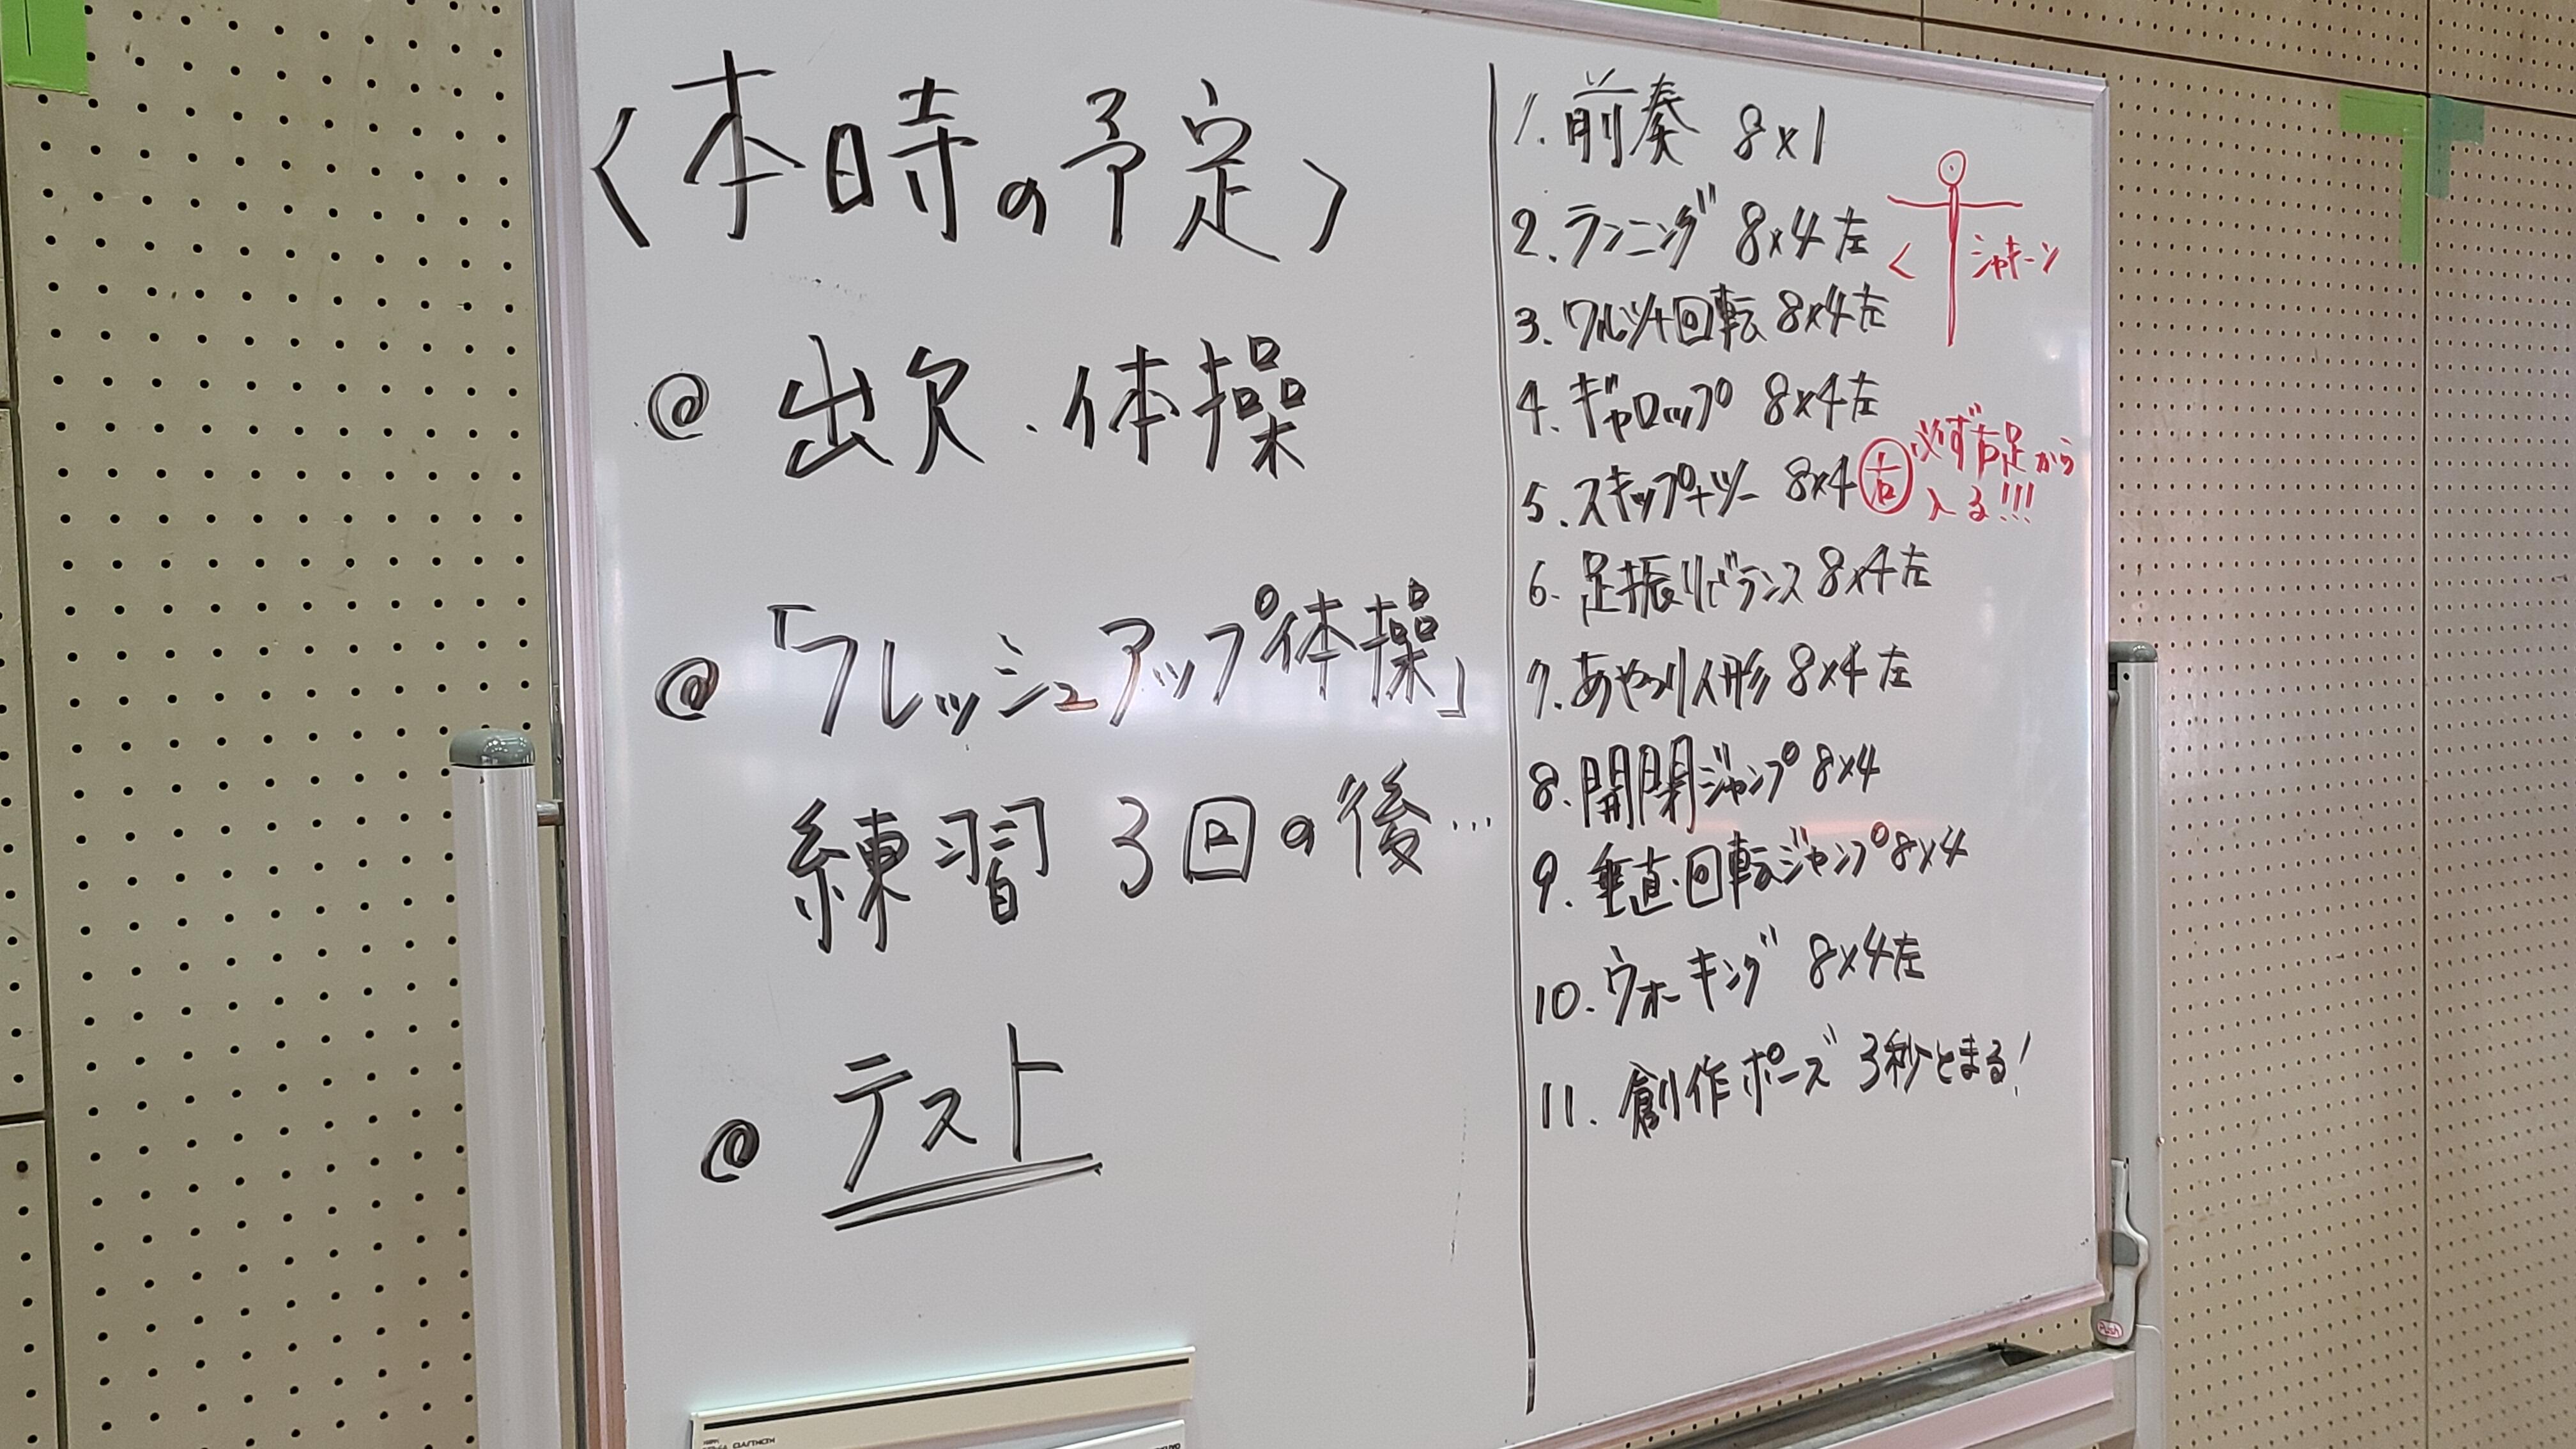 〈本時の予定〉
@ 出欠・体操
@「フレッシュアップ体操」
練習 3回の後…
@ テスト
1. 前奏 8×1
2. ランニング 8×4 左
3. ワルツ+回転 8×4 左
4. ギャロップ 8×4 左
5. スキップ+ツー 8×4 右
6. 足振りバランス 8×4 左
7. あやつり人形 8×4 左
8. 開閉ジャンプ 8×4
9. 垂直・回転ジャンプ 8×4
10. ウォーキング 8×4 左
11. 創作ポーズ 3秒とまる!
シャキーン
必ず右足から
入る!!!
Push